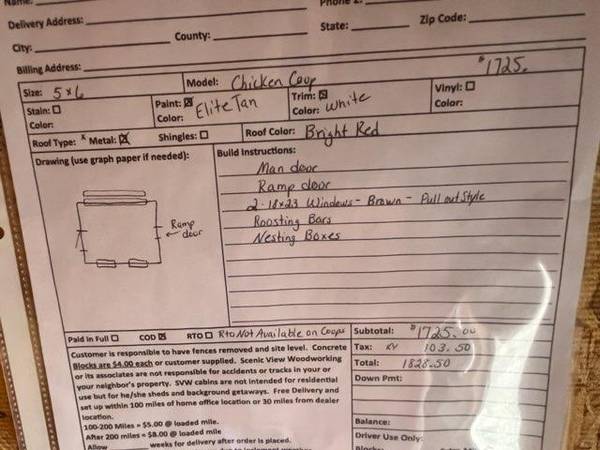 Name:
Phone 2:
Delivery Address:
State: Zip Code:
City: County:
Billing Address:
$1725.
Size: 5x6 Model: Chicken Coop
Stain: ☐ Paint: ☒ Trim: ☒ Vinyl: ☐
Color: Color: Elite Tan Color: White Color:
Roof Type: * Metal: ☒ Shingles: ☐ Roof Color: Bright Red
Drawing (use graph paper if needed): Build Instructions:
Man door
Ramp door
2-18x23 Windows - Brown - Pull out Style
Roosting Bars
Nesting Boxes
Ramp
← door
Paid in Full ☐ COD ☒ RTO ☐ Rto Not Available on Coops
Subtotal: $1725.00
Tax: KY 103.50
Total: 1828.50
Down Pmt:
Balance:
Driver Use Only:
Blocks:
Customer is responsible to have fences removed and site level. Concrete
Blocks are $4.00 each or customer supplied. Scenic View Woodworking
or its associates are not responsible for accidents or tracks in your or
your neighbor's property. SVW cabins are not intended for residential
use but for he/she sheds and background getaways. Free Delivery and
set up within 100 miles of home office location or 30 miles from dealer
location.
100-200 Miles = $5.00 @ loaded mile.
After 200 miles = $8.00 @ loaded mile
Allow weeks for delivery after order is placed.
due to inclement weather